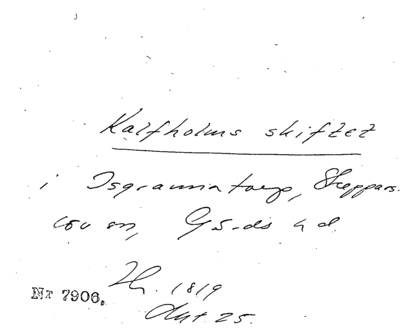 Kalfholms skiftet
i Isgrannatorp, Skeppars-
löv sn, G-ds hd.
1819
Nr 7906.
Akt 25.